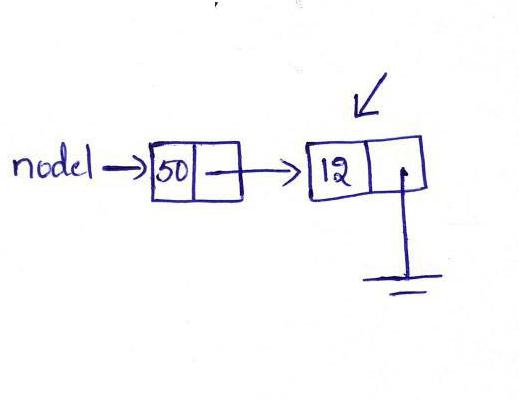 node1 50 12